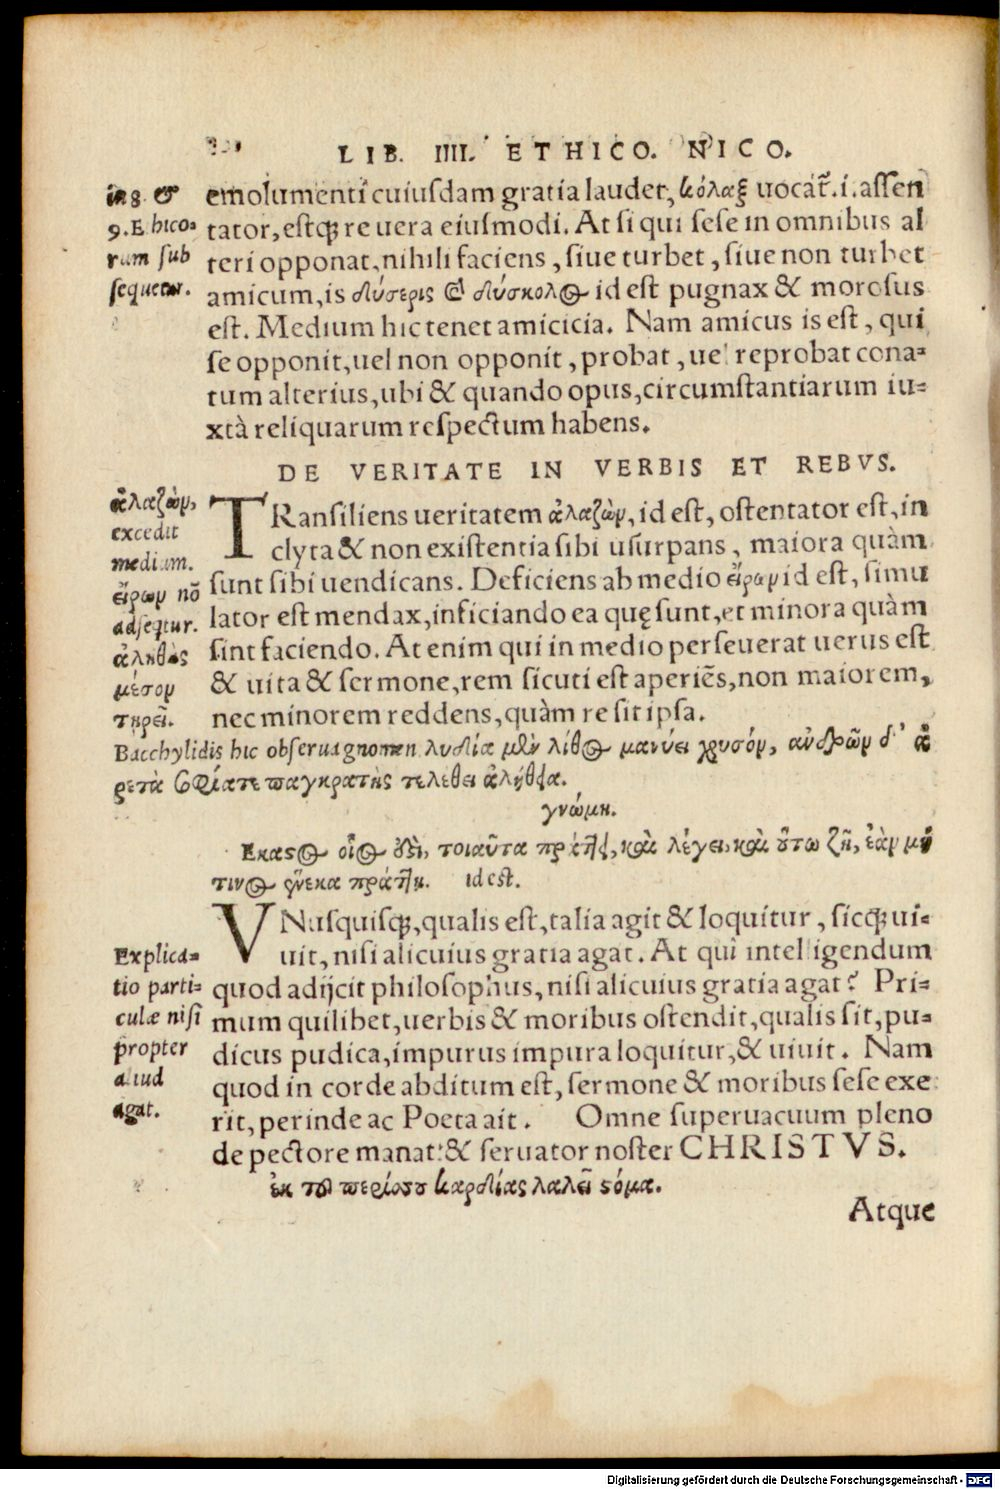 LIB. IIII. ETHICO. NICO.
in 8. &
9. Ethico-
rum sub
sequetur.
emolumenti cuiusdam gratia laudet, κόλαξ uocat̃. i. assen
tator, estq́ʒ re uera eiusmodi. At si qui sese in omnibus al
teri opponat, nihili faciens, siue turbet, siue non turbet
amicum, is δύσερις & δύσκολος id est pugnax & morosus
est. Medium hic tenet amicicia. Nam amicus is est, qui
se opponit, uel non opponit, probat, uel reprobat cona-
tum alterius, ubi & quando opus, circumstantiarum iu-
xtà reliquarum respectum habens.
DE VERITATE IN VERBIS ET REBVS.
ἀλαζὼν,
excedit
medium.
εἴρων nõ
adsequitur.
ἀληθὸς
μέσον
τηρεῖ.
TRansiliens ueritatem ἀλαζὼν, id est, ostentator est, in
clyta & non existentia sibi usurpans, maiora quàm
sunt sibi uendicans. Deficiens ab medio εἴρων id est, simu
lator est mendax, inficiando ea quę sunt, et minora quàm
sint faciendo. At enim qui in medio perseuerat uerus est
& uita & sermone, rem sicuti est aperiẽs, non maiorem,
nec minorem reddens, quàm re sit ipsa.
Bacchylidis hic obserua gnomen λυδία μὲν λίθος μανύει χρυσόν, ἀνδρῶν δ' ἀ
ρετὰ σοφίατε παγκρατὴς τελέθει ἀλήθεια.
γνώμη.
Εκαστος οἷος ἐστὶ, τοιαῦτα πράττει, καὶ λέγει, καὶ ὅυτω ζῆ, ἐὰν μή
τινος ἕνεκα πράττῃ. id est.
VNusquisq́ʒ, qualis est, talia agit & loquitur, sicq́ʒ ui-
uit, nisi alicuius gratia agat. At qui intelligendum
quod adijcit philosophus, nisi alicuius gratia agat? Pri-
mum quilibet, uerbis & moribus ostendit, qualis sit, pu-
dicus pudica, impurus impura loquitur, & uiuit. Nam
quod in corde abditum est, sermone & moribus sese exe
rit, perinde ac Poeta ait. Omne superuacuum pleno
de pectore manat: & seruator noster CHRISTVS.
Explica-
tio parti-
culæ nisi
propter
aliud
agat.
ἐκ τοῦ περίσσου καρδίας λαλεῖ στόμα.
Atque
Digitalisierung gefördert durch die Deutsche Forschungsgemeinschaft - DFG